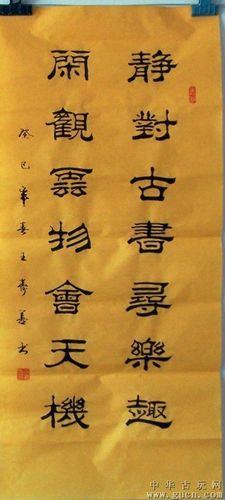 靜對古書尋樂趣
閑觀雲物會天機
癸巳年春王壽善书
中华古玩网
www.gucn.com